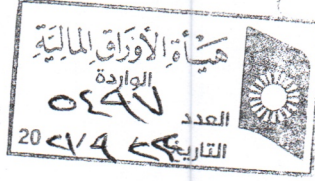 هَيْأَةِ الأَوْرَاقِ المَالِيَّةِ
الواردة
العدد ٥٤٩٧
التاريخ ٢٩ / ٩ / ٢١ 20